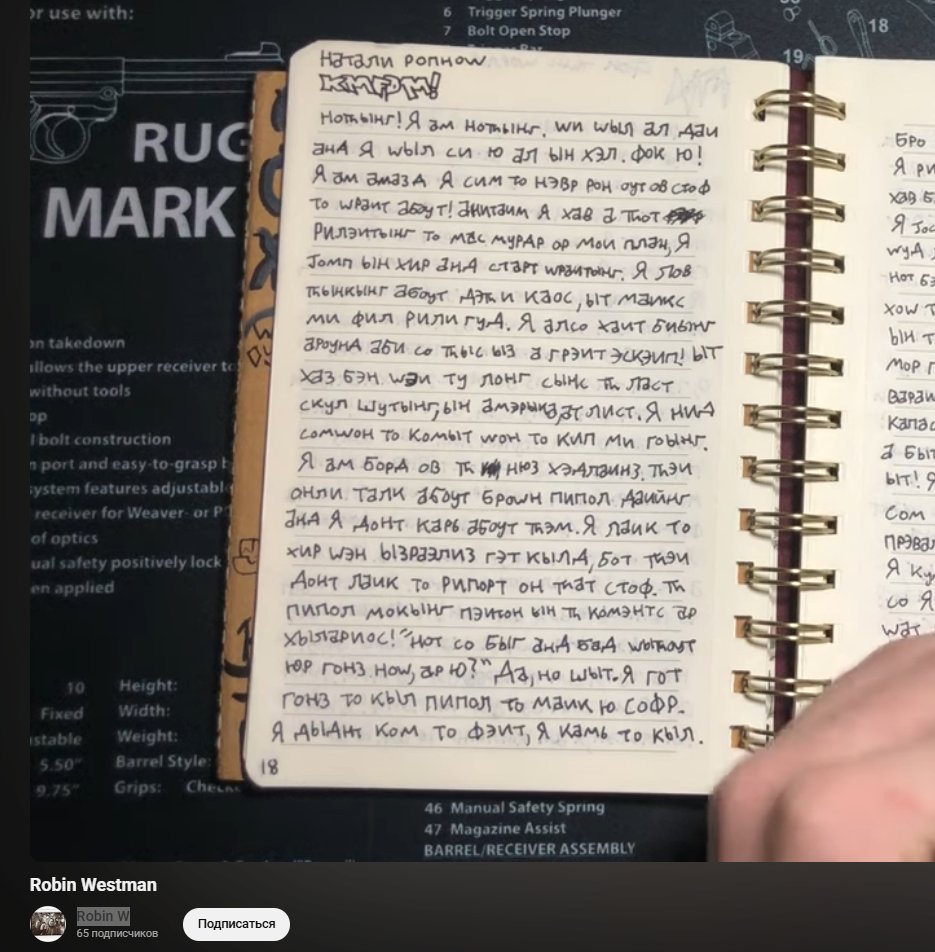 or use with:
6 Trigger Spring Plunger
7 Bolt Open Stop
18
19
RUG
MARK
on takedown
allows the upper receiver to
without tools
op
l bolt construction
n port and easy-to-grasp
ystem features adjustable
receiver for Weaver- or P
of optics
ual safety positively lock
en applied
10 Height:
Fixed Width:
ustable Weight:
5.50" Barrel Style:
9.75" Grips:
Натали Ропноw
КМFDM!
Нотһынг! Я ам нотһынг. wи wыл ал даи
анд Я wыл си ю ал ын хэл. фок ю!
Я ам амазд Я сим то нэвр рон оут ов стоф
то wраит абоут! Энитаим Я хав а тһот
рилэитынг то мас мурдр ор мои план, Я
Jомп ын хир анд старт wраитынг. Я лов
тһынкынг абоут дэтһ и каос, ыт маикс
ми фил рили гуд. Я алсо хаит биынг
Ароунд аби со тһыс ыз а грэит эскэип! ыт
хаз бэн wэи ту лонг сынс тһ ласт
скул шутынг, ын амэрыка, ат лист. Я нид
сомwон то комыт wон то кип ми гоынг.
Я ам борд ов тһ нюз хэдлаинз. тһэи
онли талк абоут броwн пипол даиинг
анд Я донт каръ абоут тһэм. Я лаик то
хир wэн ызраэлиз гэт кылд, бот тһэи
донт лаик то рипорт он тһат стоф. Тһ
пипол мокынг пэитон ын тһ комэнтс ар
хыларриос! "Нот со быг анд бад wытһоут
юр гонз ноw, ар ю?" Да, но шыт. Я гот
гонз то кыл пипол то маик ю софр.
Я дыднт ком то фэит, Я камь то кыл.
18
Бро
46 Manual Safety Spring
47 Magazine Assist
BARREL/RECEIVER ASSEMBLY
Robin Westman
Robin W
65 подписчиков
Подписаться